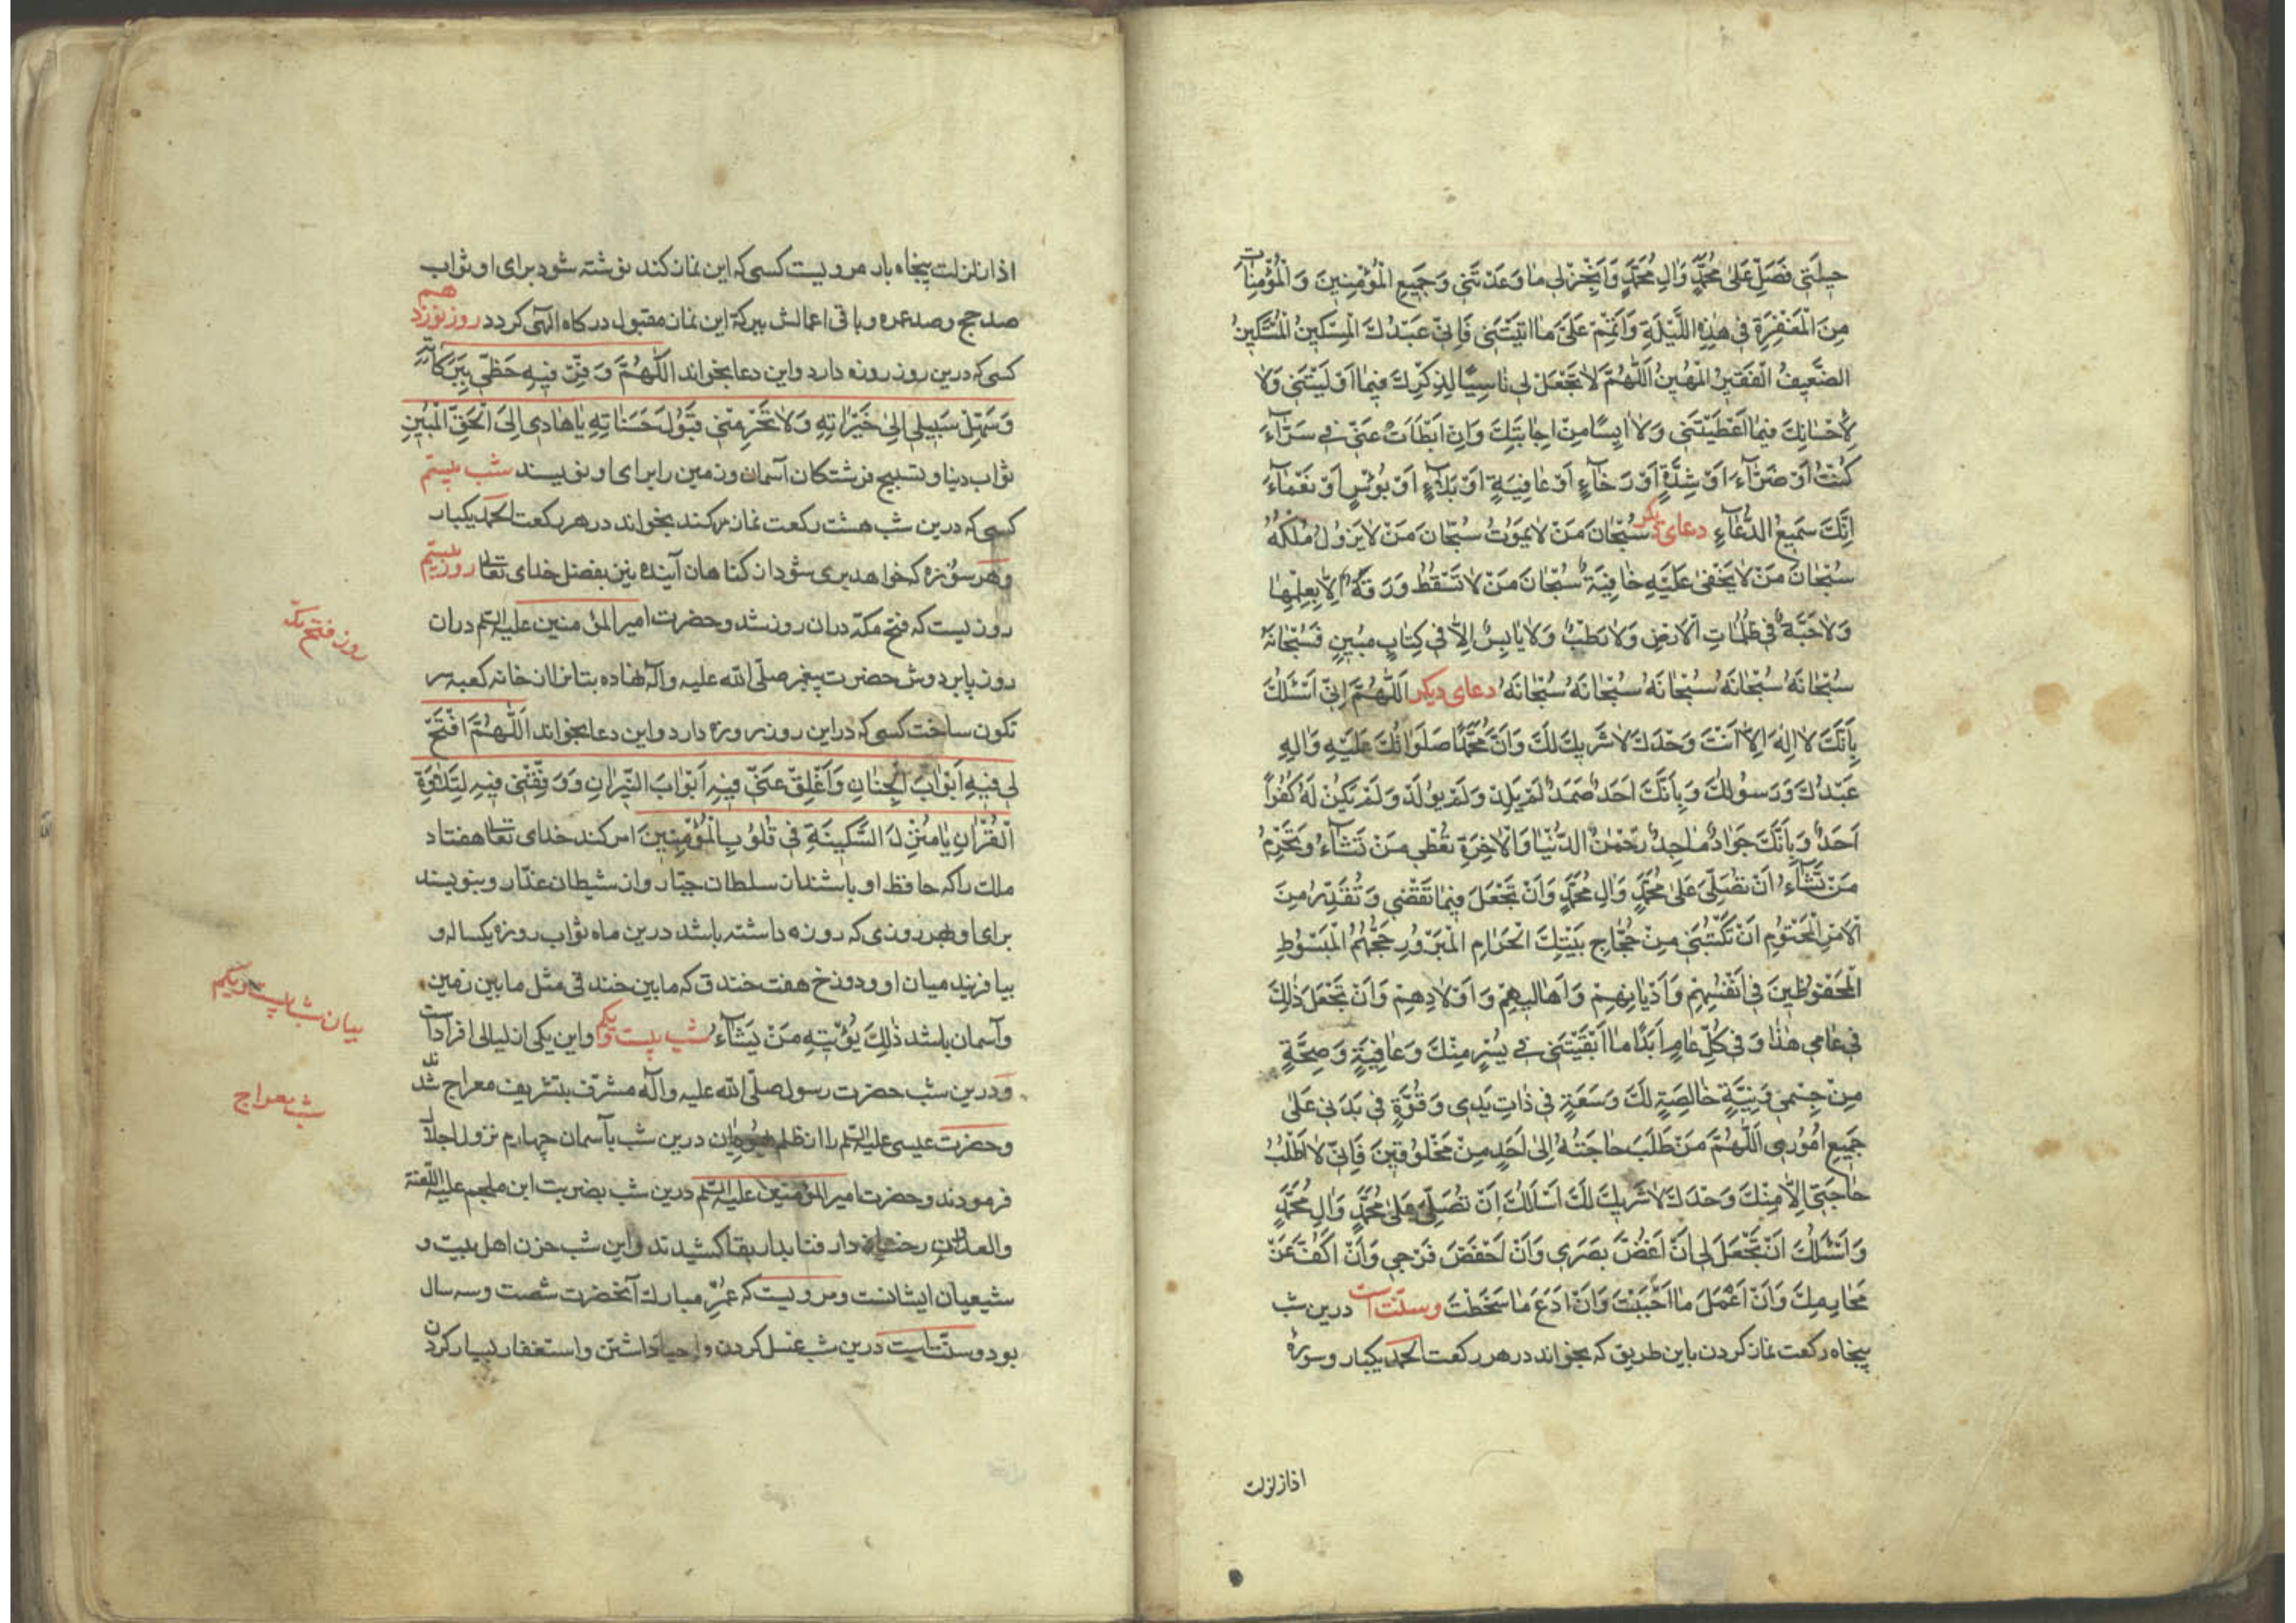 حيلَتي فَصَلِّ عَلىٰ مُحَمَّدٍ وَاٰلِ مُحَمَّدٍ وَاَنْجِزْ لي مٰا وَعَدْتَني وَجَميعِ الْمُؤْمِنينَ وَالْمُؤْمِنٰاتِ
مِنَ الْمَغْفِرَةِ في هٰذِهِ اللَّيْلَةِ وَاَتْمِمْ عَلَيَّ مٰا اٰتَيْتَني فَاِنّي عَبْدُكَ الْمِسْكينُ الْمُسْتَكينُ
الضَّعيفُ الْفَقيرُ الْمَهينُ اَللّٰهُمَّ لاٰ تَجْعَلْ لي نٰاسِيًا لِذِكْرِكَ فيمٰا اَوْلَيْتَني وَلاٰ
لِاِحْسٰانِكَ فيمٰا اَعْطَيْتَني وَلاٰ اٰيِسًا مِنْ اِجٰابَتِكَ وَاِنْ اَبْطَاَتْ عَنّي في سَرّٰاءَ
كُنْتُ اَوْ ضَرّٰاءَ اَوْ شِدَّةٍ اَوْ رَخٰاءٍ اَوْ عٰافِيَةٍ اَوْ بَلاٰءٍ اَوْ بُؤْسٍ اَوْ نَعْمٰاءَ
اِنَّكَ سَميعُ الدُّعٰاءِ دعای دیگر سُبْحٰانَ مَنْ لاٰ يَمُوتُ سُبْحٰانَ مَنْ لاٰ يَزُولُ مُلْكُهُ
سُبْحٰانَ مَنْ لاٰ يَخْفىٰ عَلَيْهِ خٰافِيَةٌ سُبْحٰانَ مَنْ لاٰ تَسْقُطُ وَرَقَةٌ اِلاّٰ بِعِلْمِهٰا
وَلاٰ حَبَّةٌ في ظُلُمٰاتِ الْاَرْضِ وَلاٰ رَطْبٌ وَلاٰ يٰابِسٌ اِلاّٰ في كِتٰابٍ مُبينٍ فَسُبْحٰانَهُ
سُبْحٰانَهُ سُبْحٰانَهُ سُبْحٰانَهُ سُبْحٰانَهُ سُبْحٰانَهُ دعای دیکر اَللّٰهُمَّ اِنّي اَسْئَلُكَ
بِاَنَّكَ لاٰ اِلٰهَ اِلاّٰ اَنْتَ وَحْدَكَ لاٰ شَريكَ لَكَ وَاَنَّ مُحَمَّدًا صَلَوٰاتُكَ عَلَيْهِ وَاٰلِهِ
عَبْدُكَ وَرَسُولُكَ وَبِاَنَّكَ اَحَدٌ صَمَدٌ لَمْ يَلِدْ وَلَمْ يُولَدْ وَلَمْ يَكُنْ لَهُ كُفُوًا
اَحَدٌ وَبِاَنَّكَ جَوٰادٌ مٰاجِدٌ رَحْمٰنُ الدُّنْيٰا وَالْاٰخِرَةِ تُعْطي مَنْ تَشٰاءُ وَتَحْرِمُ
مَنْ تَشٰاءُ اَنْ تُصَلِّيَ عَلىٰ مُحَمَّدٍ وَاٰلِ مُحَمَّدٍ وَاَنْ تَجْعَلَ فيمٰا تَقْضي وَتُقَدِّرُ مِنَ
الْاَمْرِ الْمَحْتُومِ اَنْ تَكْتُبَني مِنْ حُجّٰاجِ بَيْتِكَ الْحَرٰامِ الْمَبْرُورِ حَجُّهُمُ الْمَبْسُوطِ
الْمَحْفُوظينَ في اَنْفُسِهِمْ وَاَدْيٰانِهِمْ وَاَهٰاليهِمْ وَاَوْلاٰدِهِمْ وَاَنْ تَجْعَلَ ذٰلِكَ
في عٰامي هٰذٰا وَفي كُلِّ عٰامٍ اَبَدًا مٰا اَبْقَيْتَني في يُسْرٍ مِنْكَ وَعٰافِيَةٍ وَصِحَّةٍ
مِنْ جِسْمي وَنِيَّةٍ خٰالِصَةٍ لَكَ وَسَعَةٍ في ذٰاتِ يَدي وَقُوَّةٍ في بَدَني عَلىٰ
جَميعِ اُمُوري اَللّٰهُمَّ مَنْ طَلَبَ حٰاجَتَهُ اِلىٰ اَحَدٍ مِنْ مَخْلُوقينَ فَاِنّي لاٰ اَطْلُبُ
حٰاجَتي اِلاّٰ مِنْكَ وَحْدَكَ لاٰ شَريكَ لَكَ اَسْاَلُكَ اَنْ تُصَلِّيَ عَلىٰ مُحَمَّدٍ وَاٰلِ مُحَمَّدٍ
وَاَسْئَلُكَ اَنْ تَجْعَلَ لي اَنْ اَغُضَّ بَصَري وَاَنْ اَحْفَظَ فَرْجي وَاَنْ اَكُفَّ عَنْ
مَحٰارِمِكَ وَاَنْ اَعْمَلَ مٰا اَحْبَبْتَ وَاَنْ اَدَعَ مٰا سَخَطْتَ و سنّت است درین شب
پنجاه رکعت نماز کردن باین طریق که بخواند در هر رکعت الحمد یکبار و سورهٔ
اذا زلزلت
اذا زلزلت پنجاه بار مرویست کسی که این نماز کند نوشته شود برای او ثواب
صد حج و صد عمره و باقی اعمالش ببرکة این نماز مقبول درکاه الهی کردد روز نوزدهم
کسی که درین روز روزه دارد و این دعا بخواند اَللّٰهُمَّ وَفِّرْ فيهِ حَظّي بِبَرَكٰاتِهِ
وَسَهِّلْ سَبيلي اِلىٰ خَيْرٰاتِهِ وَلاٰ تَحْرِمْني قَبُولَ حَسَنٰاتِهِ يٰا هٰادي اِلَى الْحَقِّ الْمُبينِ
ثواب دنیا و تسبیح فرشتکان آسمان و زمین را برای او نویسند شب بیستم
کسی که درین شب هشت رکعت نماز کند بخواند در هر رکعت الحمد یکبار
و هر سوره که خواهد بری شود از کناهان آینده بفضل خدای تعالی روز بیستم
روزیست که فتح مکّه در آن روز شد و حضرت امیر المؤمنین علیه السّلم در آن
روز پا بر دوش حضرت پیغمبر صلّی الله علیه و آله نهاده بتانرا از خانه کعبه سر
نکون ساخت کسی که در این روز روزه دارد و این دعا بخواند اَللّٰهُمَّ افْتَحْ
لي فيهِ اَبْوٰابَ الْجِنٰانِ وَاَغْلِقْ عَنّي فيهِ اَبْوٰابَ النّيرٰانِ وَوَفِّقْني فيهِ لِتِلاٰوَةِ
الْقُرْاٰنِ يٰا مُنْزِلَ السَّكينَةِ في قُلُوبِ الْمُؤْمِنينَ امر کند خدای تعالی هفتاد
ملک را که حافظ او باشند از سلطان جبّار و از شیطان غدّار و بنویسند
برای او بهر روزی که روزه داشته باشد درین ماه ثواب روزه یکساله و
بیافریند میان او و دوزخ هفت خندق که مابین خندقی مثل مابین زمین
و آسمان باشد ذٰلِكَ يُؤْتيهِ مَنْ يَشٰاءُ شب بیست و یکم و این یکی از لیالی افراد است
و درین شب حضرت رسول صلّی الله علیه و آله مشرّف بتشریف معراج شدند
و حضرت عیسی علیه السّلم را از ظلم درین شب بآسمان چهارم نزول اجلال
فرمودند و حضرت امیر المؤمنین علیه السّلم درین شب بضربت ابن ملجم علیه اللّعنة
و العذاب رخت از دار فنا بدار بقا کشیدند و این شب حزن اهل بیت و
شیعیان ایشانست و مرویست که عمر مبارک آنحضرت شصت و سه سال
بود و سنّتست درین شب غسل کردن و احیا داشتن و استغفار بسیار کردن
روز فتح مکّه
بیان شب بیست و یکم
شب معراج